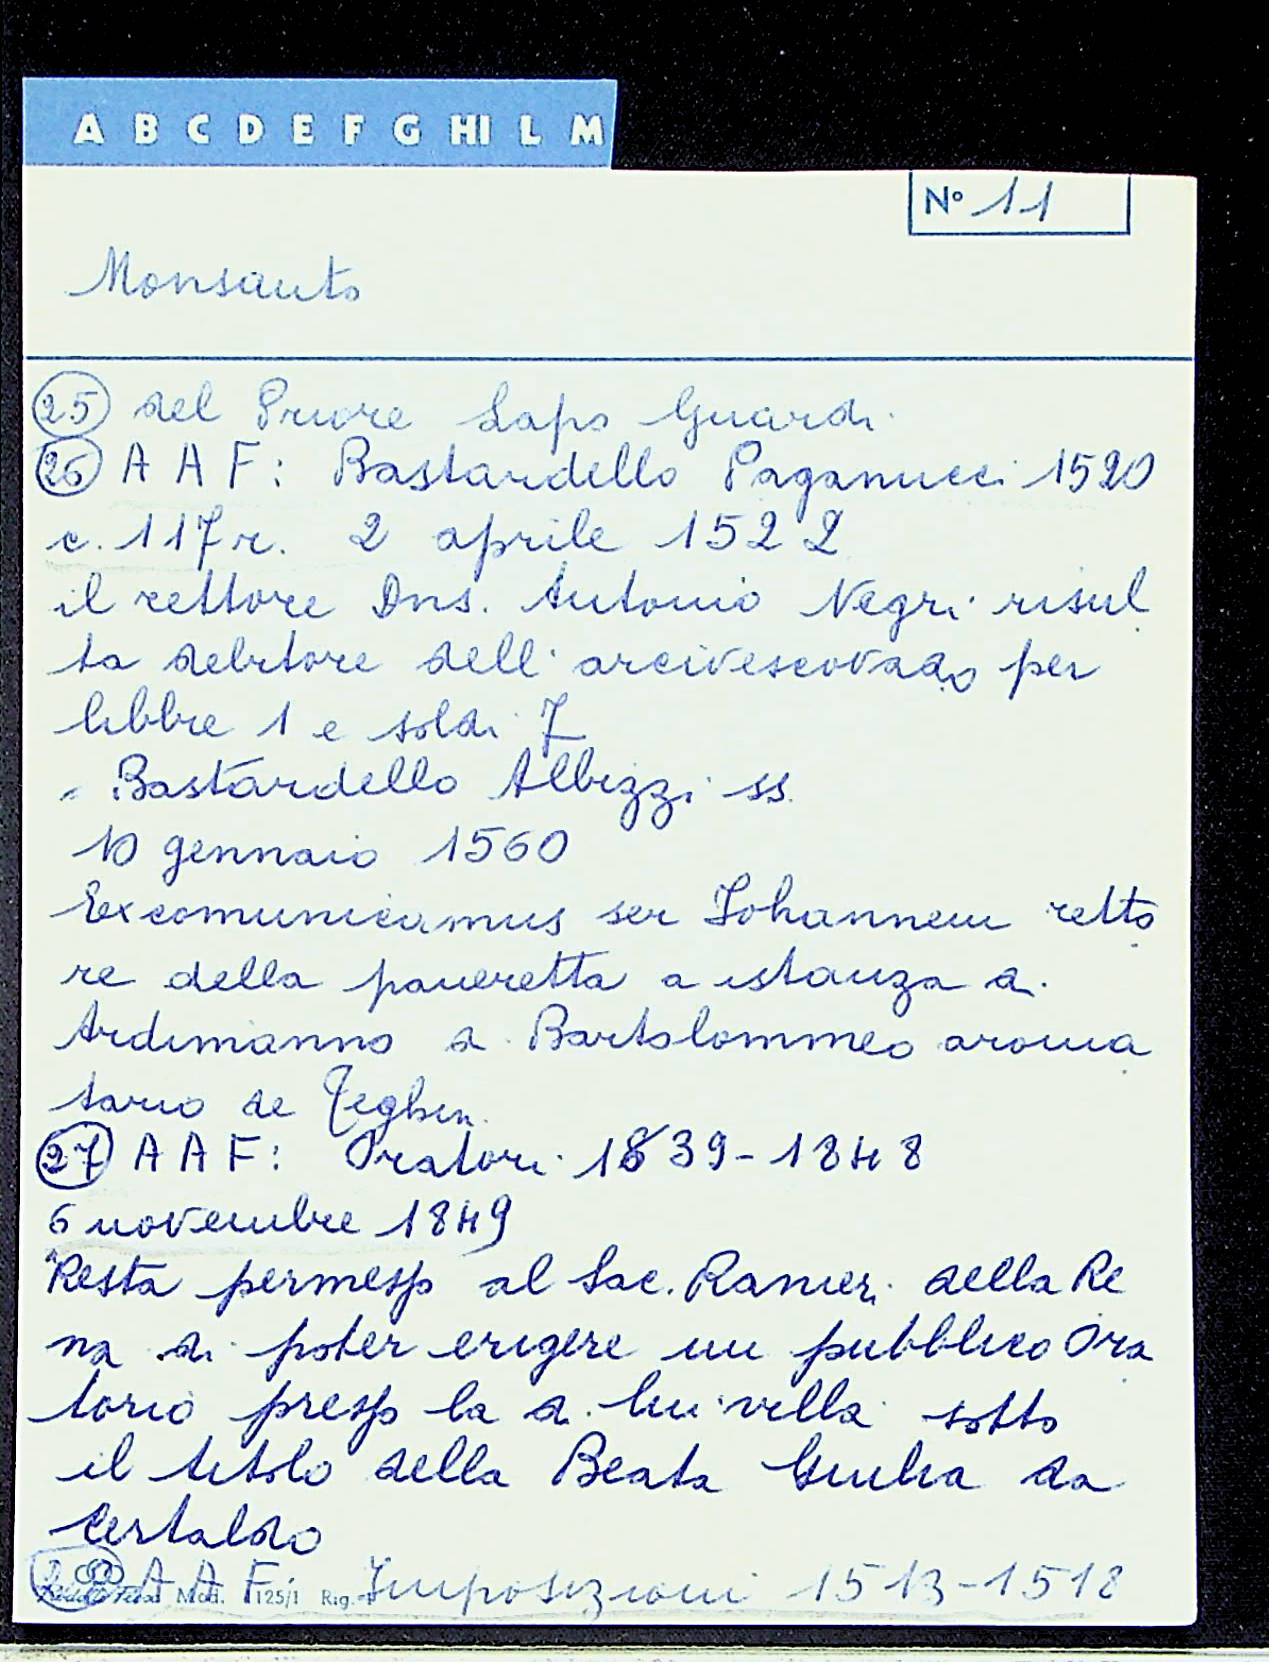 A B C D E F G HI L M
N° 11
Monsanto
25 del Priore Lapo Guardi
26 A A F: Bastardello Paganucci 1520
c. 117 r. 2 aprile 1522
il rettore Dns. Antonio Negri risul
ta debitore dell' arcivescovado per
libbre 1 e soldi 7
Bastardello Albizzi ss.
10 gennaio 1560
Excomunicamus ser Johannem retto
re della paneretta a istanza di
Ardimanno di Bartolommeo aroma
tario de
27 A A F: Oratori 1839-1848
6 novembre 1849
Resta permesso al Sac. Ranieri della Re
na di poter erigere un pubblico Ora
torio presso la di lui villa sotto
il titolo della Beata Giulia da
Certaldo
28 A A F: Imposizioni 1513-1518
Mod. 125/1 Rig.